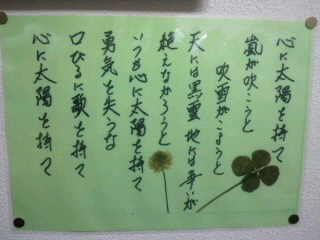 心に太陽を持て
嵐が吹こうと
吹雪がこようと
天には黒雲 地には争いが
絶えなかろうと
いつも心に太陽を持て
勇気を失うな
口びるに歌を持て
心に太陽を持て